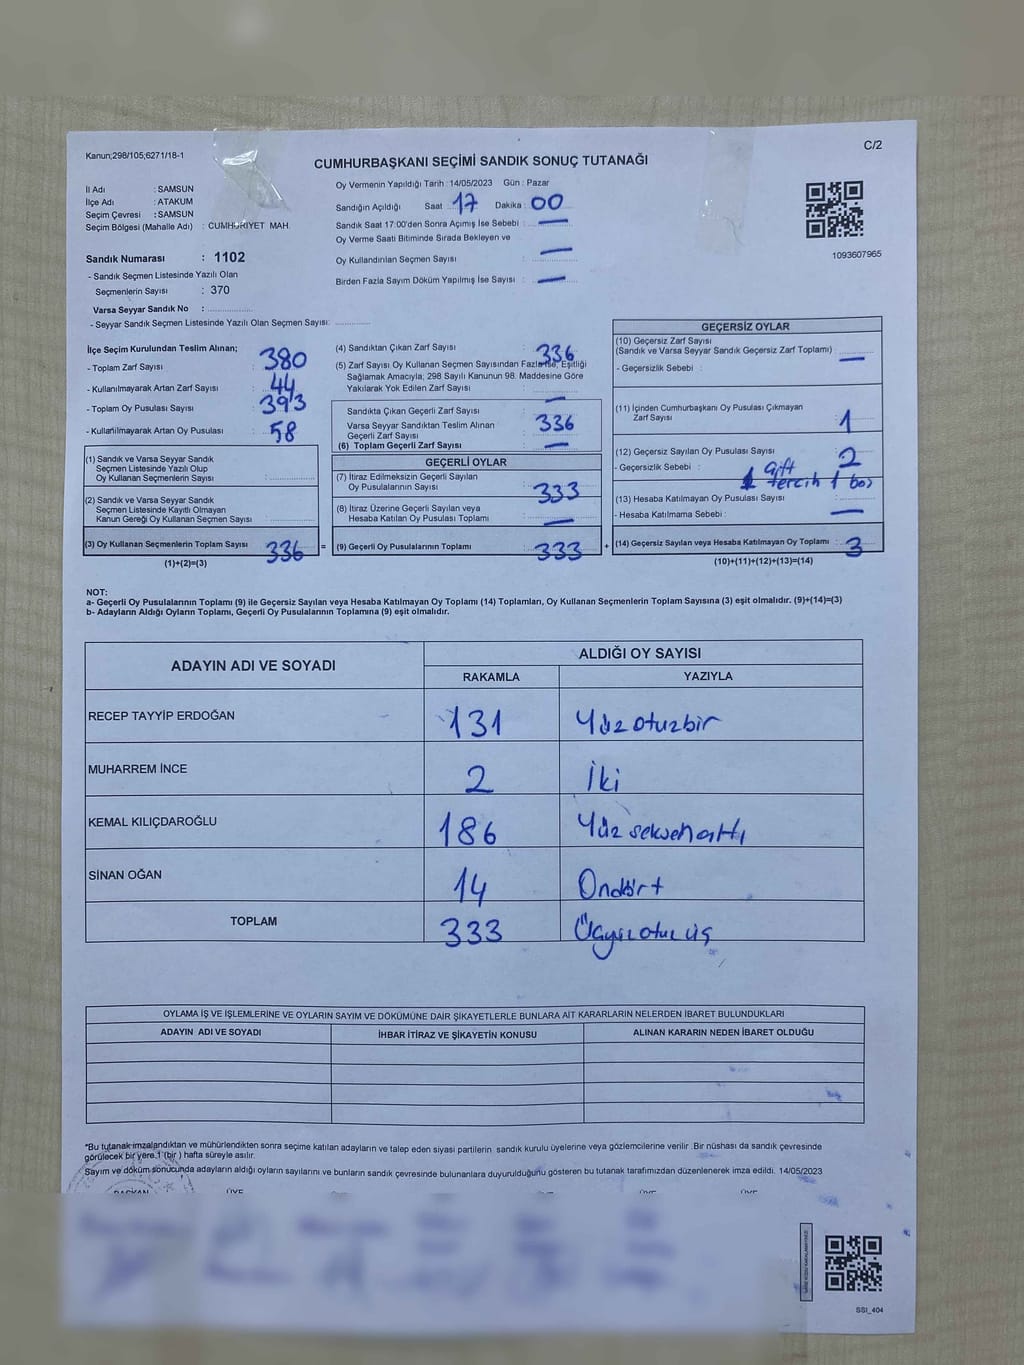 Kanun;298/105;6271/18-1
C/2
CUMHURBAŞKANI SEÇİMİ SANDIK SONUÇ TUTANAĞI
İl Adı : SAMSUN
İlçe Adı : ATAKUM
Seçim Çevresi : SAMSUN
Seçim Bölgesi (Mahalle Adı) : CUMHURİYET MAH.
Sandık Numarası : 1102
- Sandık Seçmen Listesinde Yazılı Olan
Seçmenlerin Sayısı : 370
Varsa Seyyar Sandık No :
- Seyyar Sandık Seçmen Listesinde Yazılı Olan Seçmen Sayısı:
Oy Vermenin Yapıldığı Tarih : 14/05/2023 Gün : Pazar
Sandığın Açıldığı Saat 17 Dakika : 00
Sandık Saat 17:00'den Sonra Açımış İse Sebebi : —
Oy Verme Saati Bitiminde Sırada Bekleyen ve
Oy Kullandırılan Seçmen Sayısı : —
Birden Fazla Sayım Döküm Yapılmış İse Sayısı : —
1093607965
İlçe Seçim Kurulundan Teslim Alınan;
- Toplam Zarf Sayısı : 380
- Kullanılmayarak Artan Zarf Sayısı : 44
- Toplam Oy Pusulası Sayısı : 393
- Kullanılmayarak Artan Oy Pusulası : 58
(1) Sandık ve Varsa Seyyar Sandık
Seçmen Listesinde Yazılı Olup
Oy Kullanan Seçmenlerin Sayısı :
(2) Sandık ve Varsa Seyyar Sandık
Seçmen Listesinde Kayıtlı Olmayan
Kanun Gereği Oy Kullanan Seçmen Sayısı :
(3) Oy Kullanan Seçmenlerin Toplam Sayısı 336 =
(1)+(2)=(3)
(4) Sandıktan Çıkan Zarf Sayısı : 336
(5) Zarf Sayısı Oy Kullanan Seçmen Sayısından Fazla İse, Eşitliği
Sağlamak Amacıyla; 298 Sayılı Kanunun 98. Maddesine Göre
Yakılarak Yok Edilen Zarf Sayısı : —
Sandıkta Çıkan Geçerli Zarf Sayısı :
Varsa Seyyar Sandıktan Teslim Alınan 336
Geçerli Zarf Sayısı
(6) Toplam Geçerli Zarf Sayısı : —
GEÇERLİ OYLAR
(7) İtiraz Edilmeksizin Geçerli Sayılan
Oy Pusulalarının Sayısı : 333
(8) İtiraz Üzerine Geçerli Sayılan veya
Hesaba Katılan Oy Pusulası Toplamı : —
(9) Geçerli Oy Pusulalarının Toplamı : 333 +
GEÇERSİZ OYLAR
(10) Geçersiz Zarf Sayısı
(Sandık ve Varsa Seyyar Sandık Geçersiz Zarf Toplamı) : —
- Geçersizlik Sebebi :
(11) İçinden Cumhurbaşkanı Oy Pusulası Çıkmayan
Zarf Sayısı : 1
(12) Geçersiz Sayılan Oy Pusulası Sayısı : 2
- Geçersizlik Sebebi : 1 çift
tercih 1 boş
(13) Hesaba Katılmayan Oy Pusulası Sayısı :
- Hesaba Katılmama Sebebi : —
(14) Geçersiz Sayılan veya Hesaba Katılmayan Oy Toplamı : 3
(10)+(11)+(12)+(13)=(14)
NOT:
a- Geçerli Oy Pusulalarının Toplamı (9) ile Geçersiz Sayılan veya Hesaba Katılmayan Oy Toplamı (14) Toplamları, Oy Kullanan Seçmenlerin Toplam Sayısına (3) eşit olmalıdır. (9)+(14)=(3)
b- Adayların Aldığı Oyların Toplamı, Geçerli Oy Pusulalarının Toplamına (9) eşit olmalıdır.
ADAYIN ADI VE SOYADI ALDIĞI OY SAYISI
RAKAMLA YAZIYLA
RECEP TAYYİP ERDOĞAN 131 Yüzotuzbir
MUHARREM İNCE 2 İki
KEMAL KILIÇDAROĞLU 186 Yüz seksenaltı
SİNAN OĞAN 14 Ondört
TOPLAM 333 Üçyüz otuz üç
OYLAMA İŞ VE İŞLEMLERİNE VE OYLARIN SAYIM VE DÖKÜMÜNE DAİR ŞİKAYETLERLE BUNLARA AİT KARARLARIN NELERDEN İBARET BULUNDUKLARI
ADAYIN ADI VE SOYADI İHBAR İTİRAZ VE ŞİKAYETİN KONUSU ALINAN KARARIN NEDEN İBARET OLDUĞU
*Bu tutanak imzalandıktan ve mühürlendikten sonra seçime katılan adayların ve talep eden siyasi partilerin sandık kurulu üyelerine veya gözlemcilerine verilir. Bir nüshası da sandık çevresinde
görülecek bir yere,1 (bir ) hafta süreyle asılır.
Sayım ve döküm sonucunda adayların aldığı oyların sayılarını ve bunların sandık çevresinde bulunanlara duyurulduğunu gösteren bu tutanak tarafımızdan düzenlenerek imza edildi. 14/05/2023
BAŞKAN ÜYE ÜYE ÜYE
SSI_404